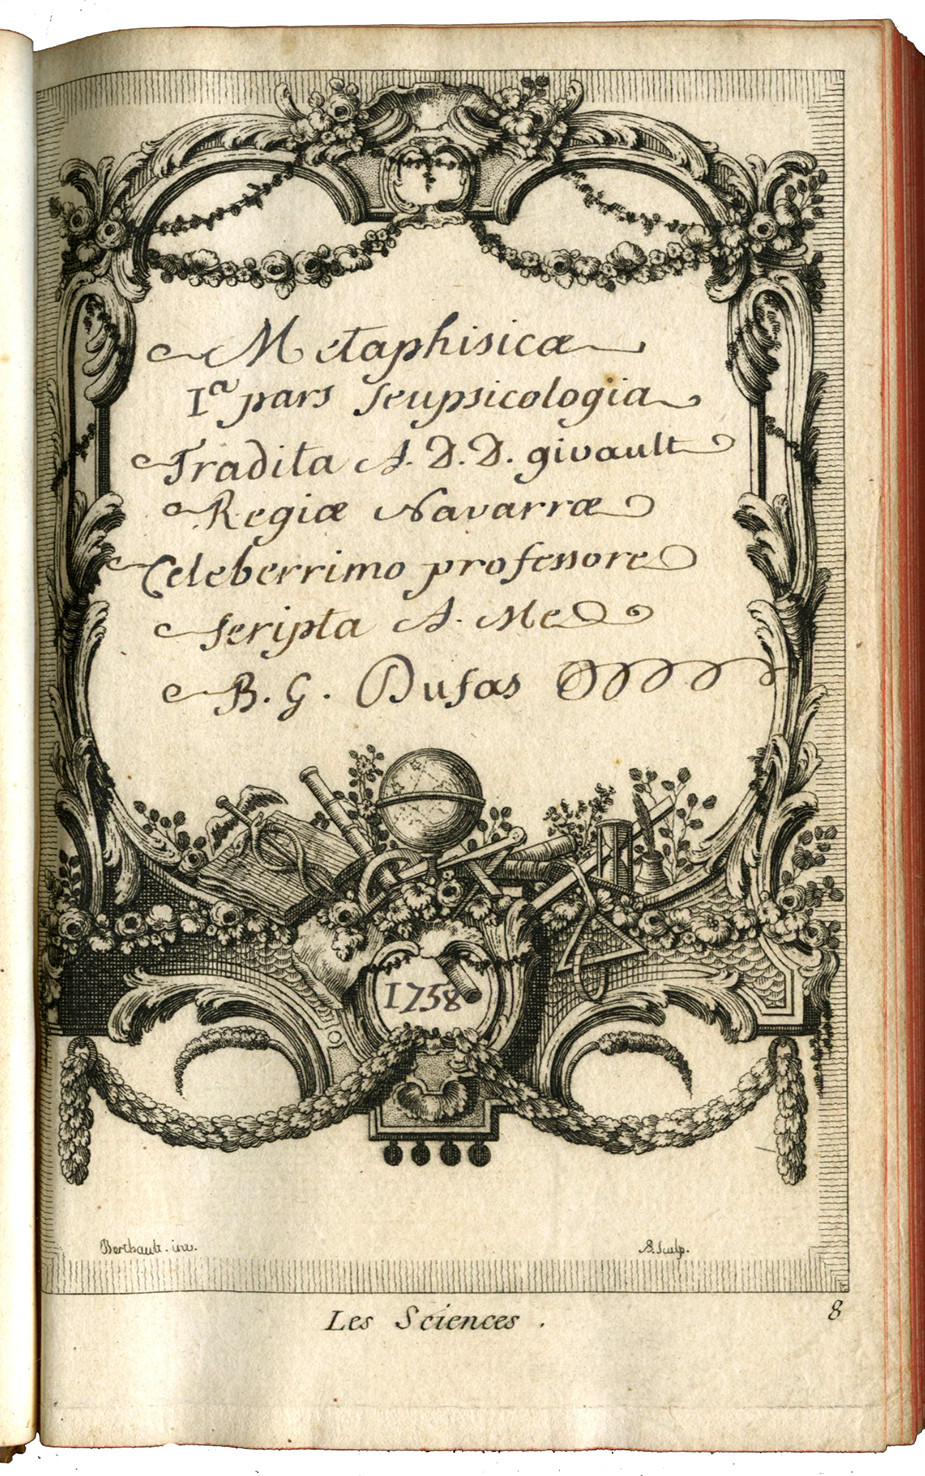 Metaphisicæ
Iª pars seupsicologia
Tradita A. D. D. givault
Regiæ Navarræ
Celeberrimo professore
scripta A. Me
B. G. Dufas
1758
Berthault. inv.
B. Sculp.
Les Sciences .
8